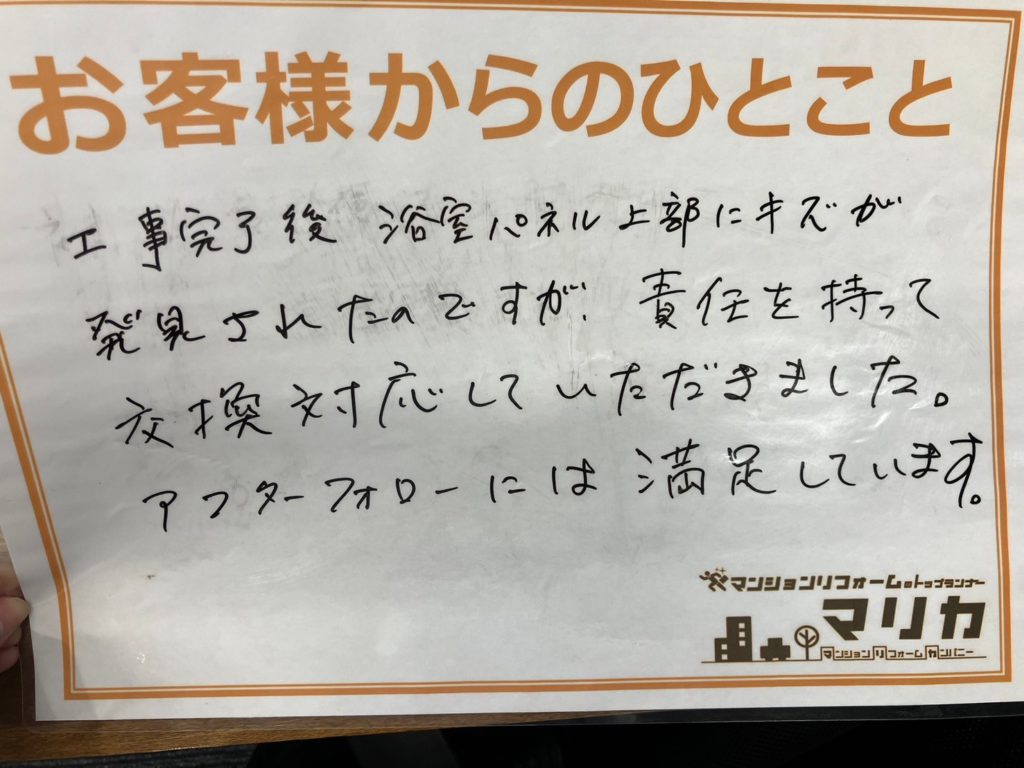 お客様からのひとこと
工事完了後 浴室パネル上部にキズが
発見されたのですが、責任を持って
交換対応していただきました。
アフターフォローには満足しています。
マンションリフォームのトップランナー
マリカ
マンションリフォームカンパニー